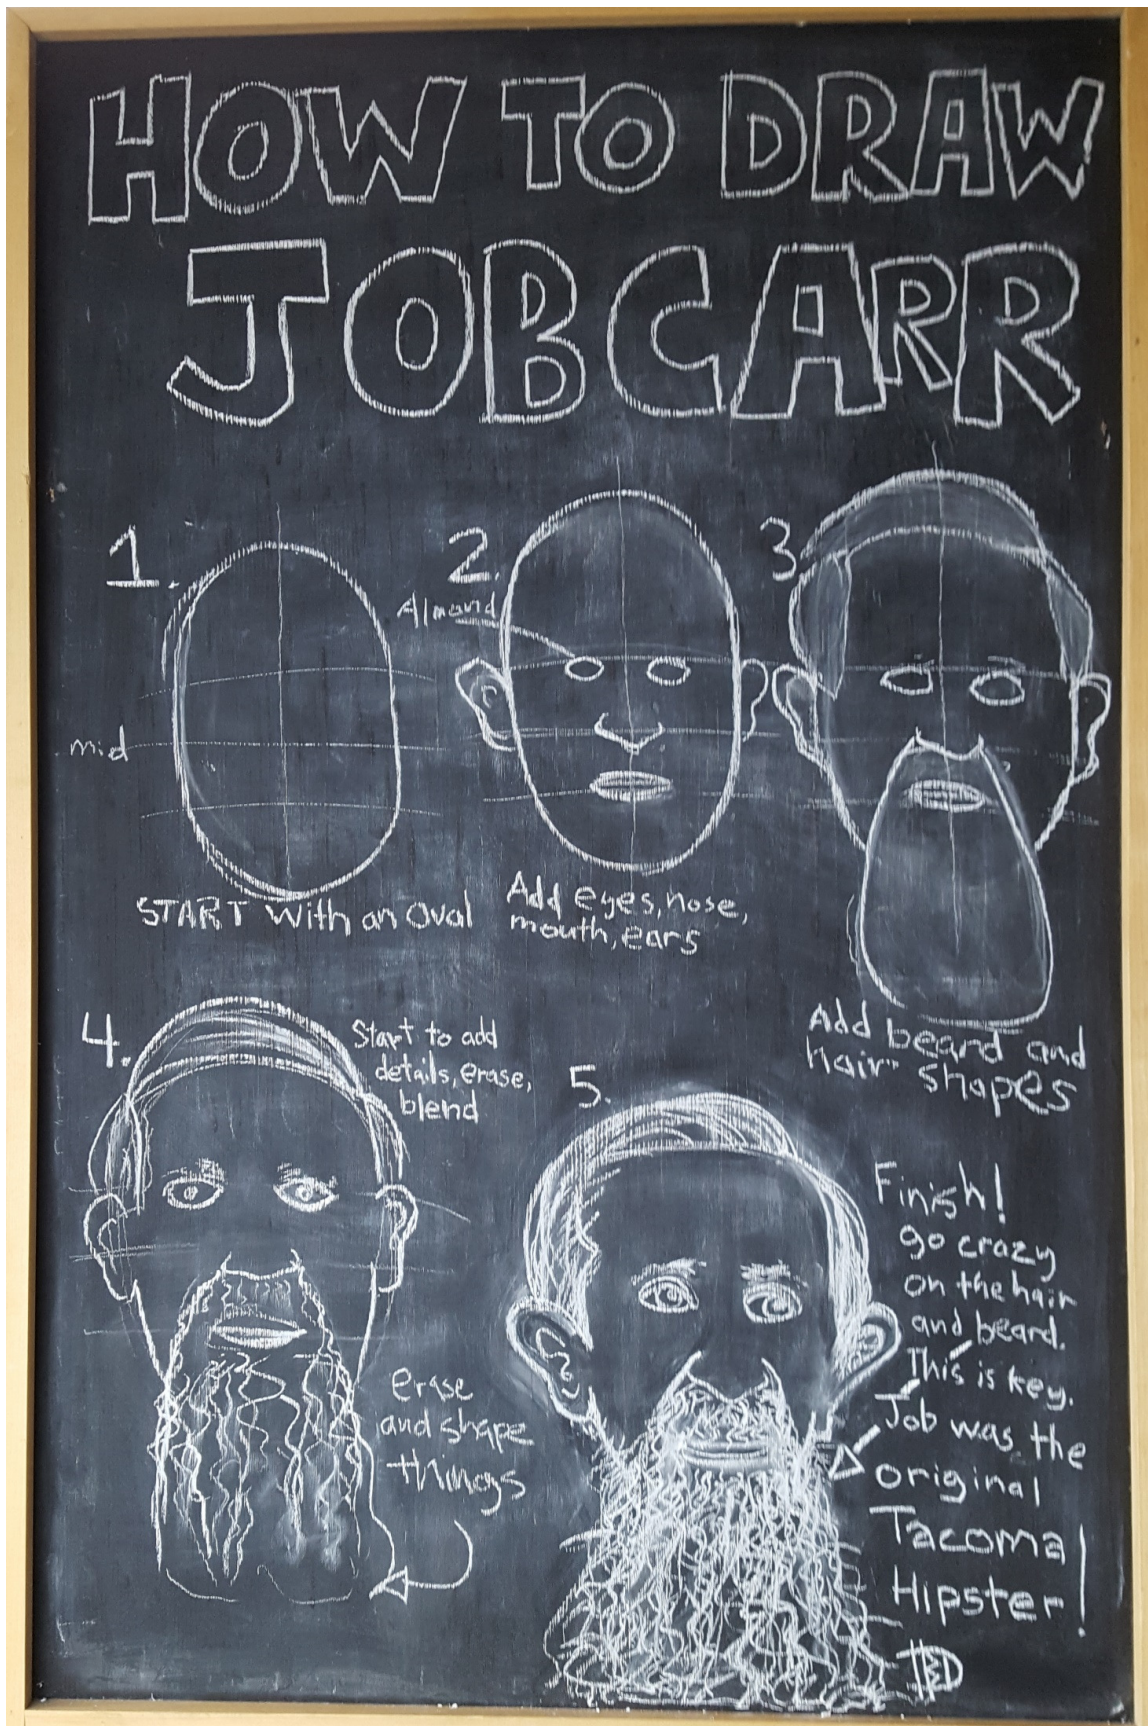 HOW TO DRAW
JOB CARR
1.
mid
START with an oval
2.
Almond
Add eyes, nose,
mouth, ears
3.
Add beard and
hair shapes
4.
Start to add
details, erase,
blend
erase
and shape
things
5.
Finish!
go crazy
on the hair
and beard.
This is key.
Job was the
original
Tacoma
Hipster!